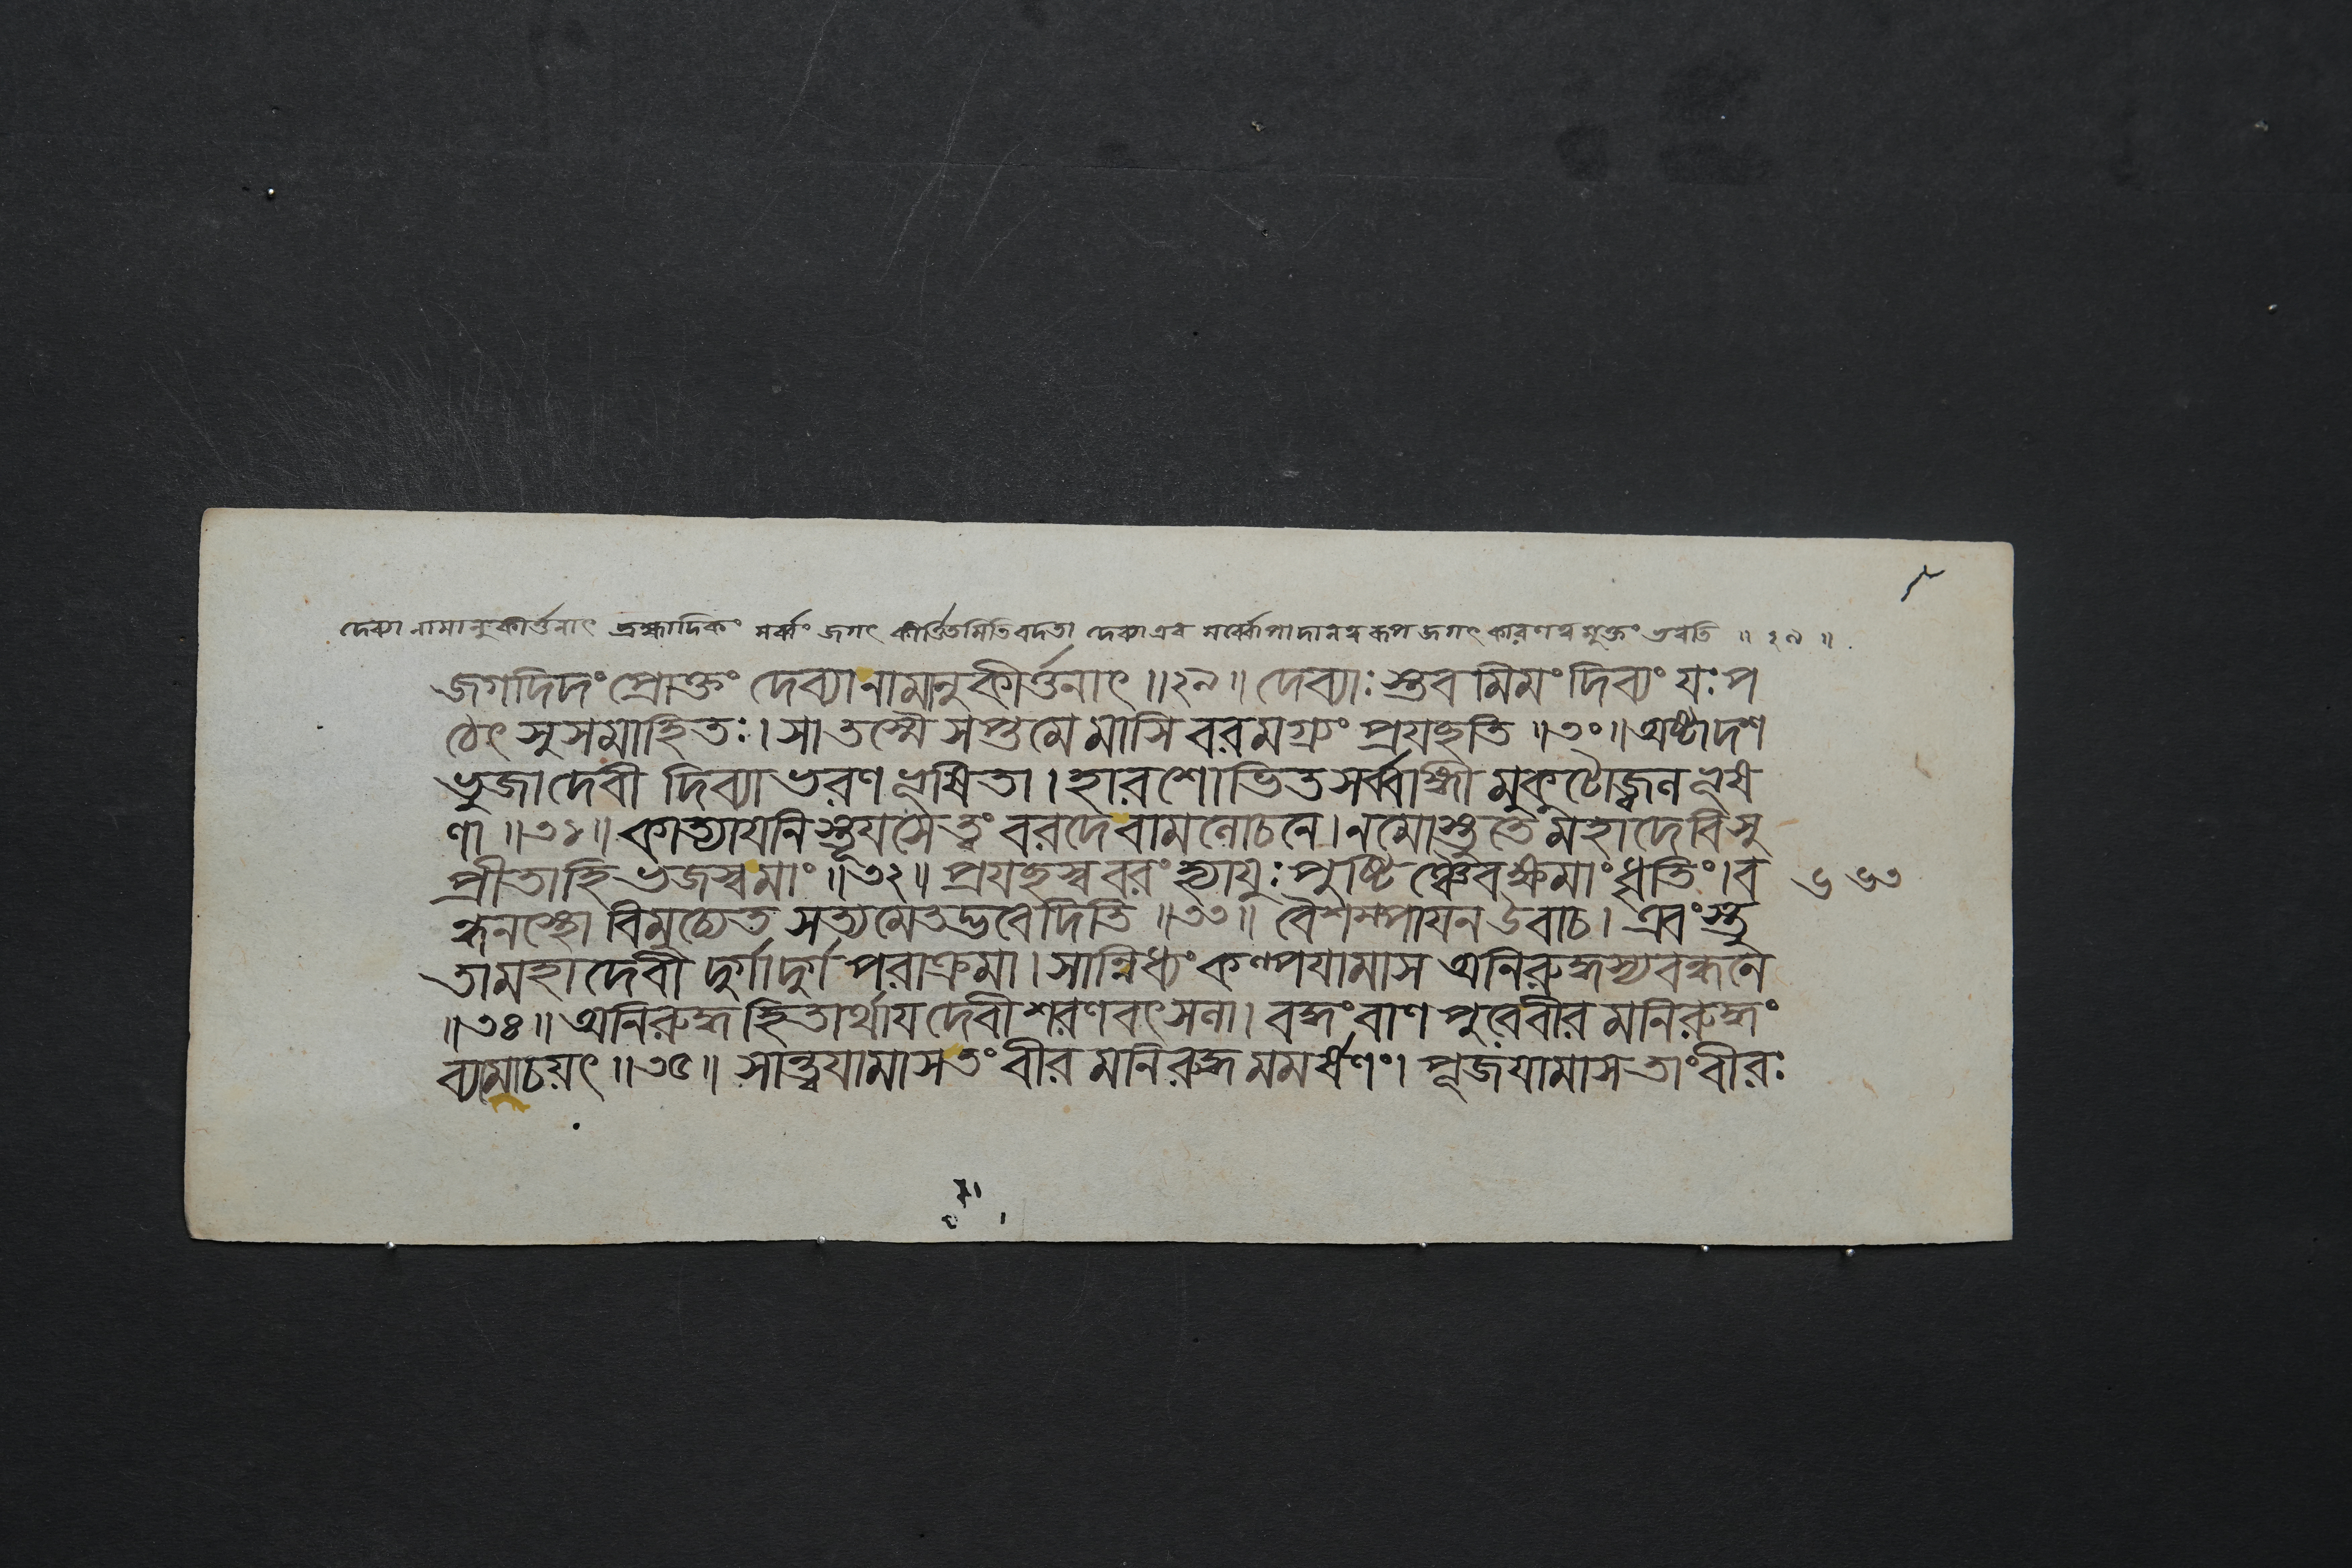 দেব্যা নামানুকীর্ত্তনাৎ ব্রহ্মাদিকং সর্ব্বং জগৎ কীর্ত্তিতমিতি বদতা দেব্যা এব সর্ব্বোপাদানত্বরূপ জগৎ কারণত্বমুক্তং ভবতি ॥ ২৯ ॥
জগদিদং প্রোক্তং দেব্যানামানুকীর্ত্তনাৎ ॥২৯॥ দেব্যাঃ স্তবমিমং দিব্যং যঃ প
ঠেৎ সুসমাহিতঃ। সা তস্মৈ সপ্তমে মাসি বরমগ্র্যং প্রযচ্ছতি ॥৩০॥ অষ্টাদশ
ভুজা দেবী দিব্যাভরণভূষিতা। হারশোভিতসর্ব্বাঙ্গী মুকুটোজ্জ্বলভূষ
ণা ॥৩১॥ কাত্যাযনি স্তূযসে ত্বং বরদে বামলোচনে। নমোস্তু তে মহাদেবি সু
প্রীতা হি ভজস্ব মাং ॥৩২॥ প্রযচ্ছস্ব বরং হ্যাযুঃ পুষ্টিঞ্চৈব ক্ষমাং ধৃতিং। ব
ন্ধনস্থো বিমুচ্যেত সত্যমেতদ্ভবেদিতি ॥৩৩॥ বৈশম্পাযন উবাচ। এবং স্তু
তা মহাদেবী দুর্গা দুর্গপরাক্রমা। সান্নিধ্যং কল্পযামাস অনিরুদ্ধস্য বন্ধনে
॥৩৪॥ অনিরুদ্ধহিতার্থায দেবী শরণবৎসলা। বদ্ধং বাণপুরে বীরমনিরুদ্ধং
ব্যমোচয়ৎ ॥৩৫॥ সান্ত্বযামাস তং বীরমনিরুদ্ধমমর্ষণং। পূজযামাস তাং বীরঃ
৬৬৩